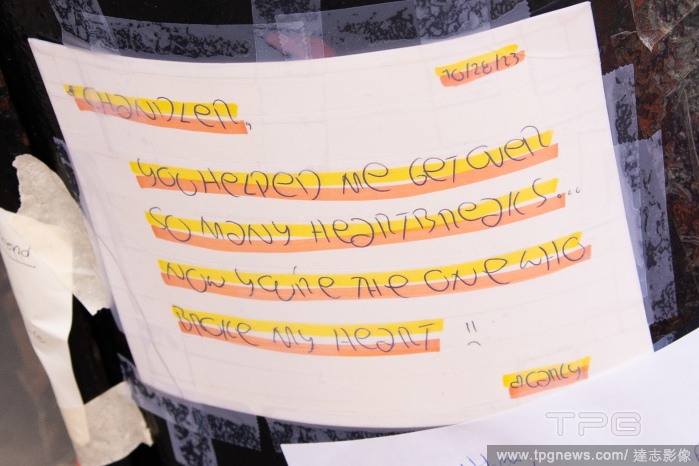 10/28/23
"CHANDLER",
YOU HELPED ME GET OVER
SO MANY HEARTBREAKS...
NOW YOU'RE THE ONE WHO
BROKE MY HEART :(
TPG
www.tpgnews.com/ 達志影像